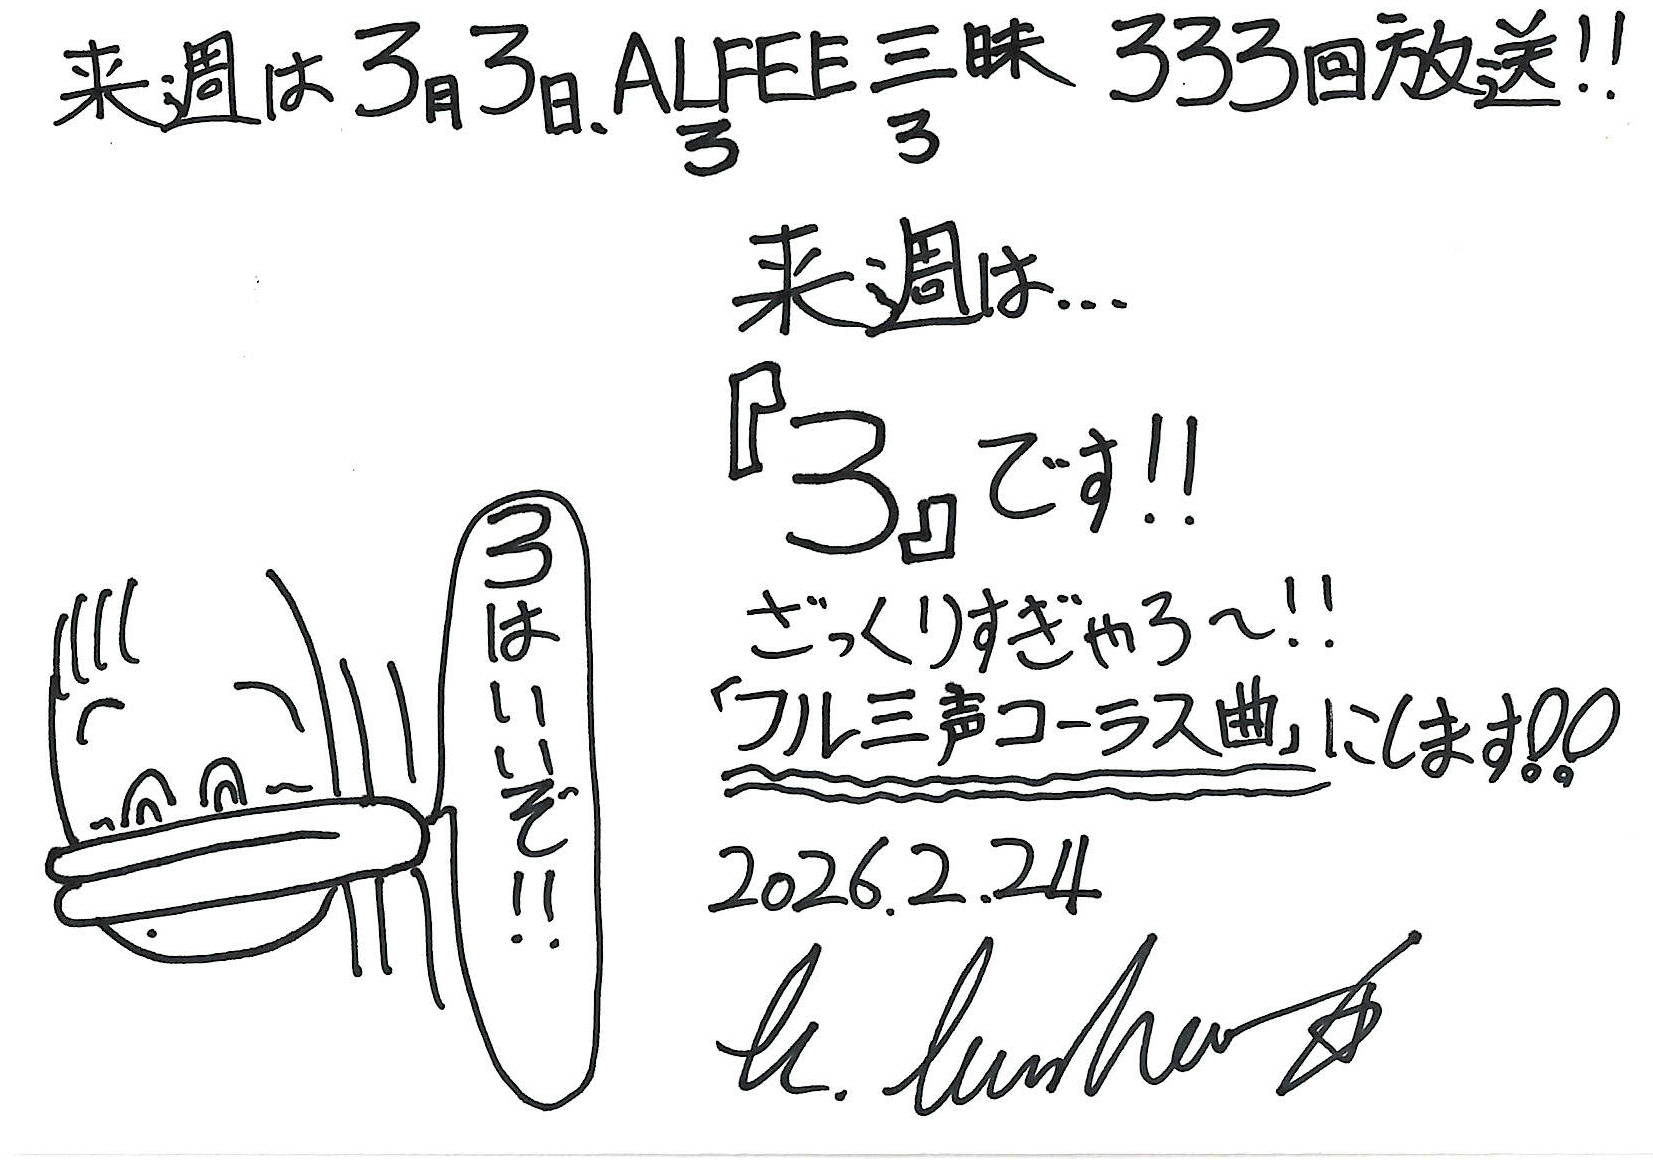 来週は3月3日、ALFEE三昧 333回放送!!
3 3
来週は…
『3』です!!
ざっくりすぎやろ〜!!
「フル三声コーラス曲」にします!!
3はいいぞ!!
2026.2.24